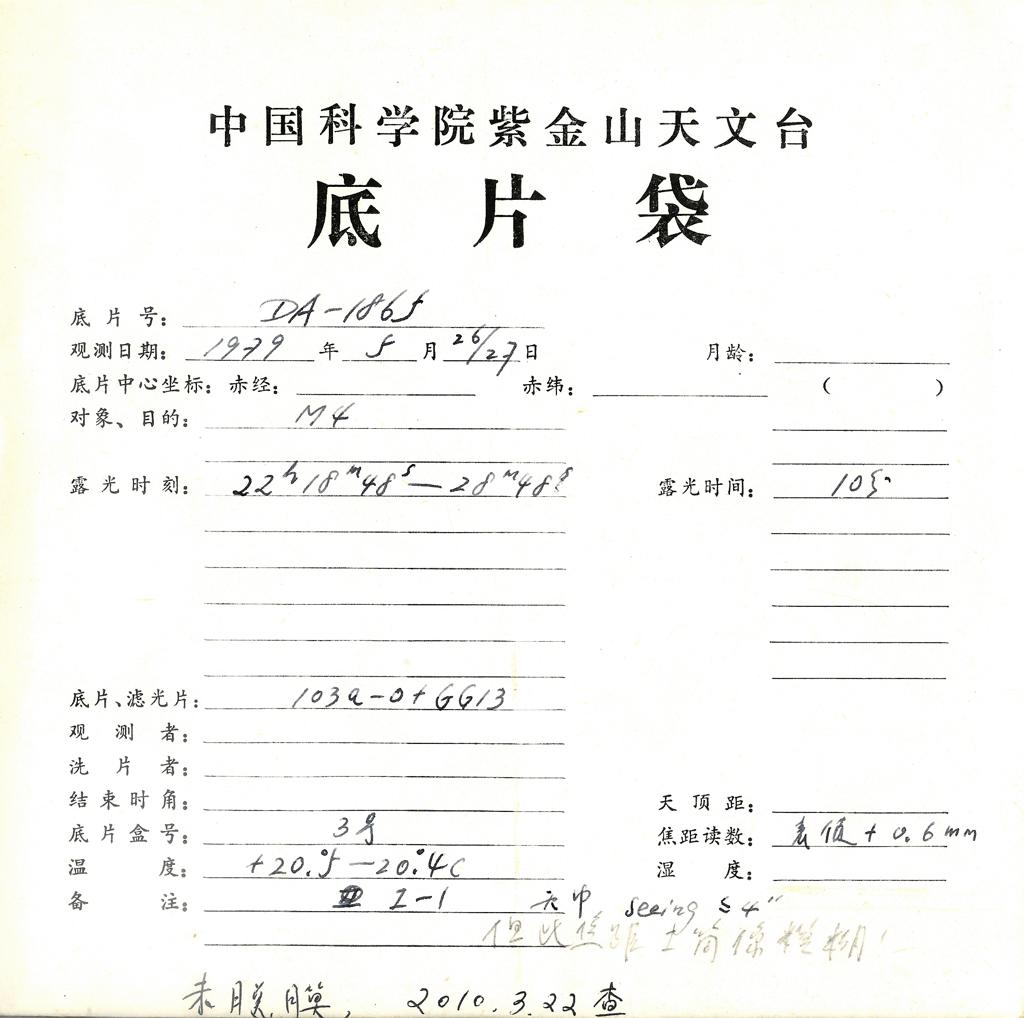 中国科学院紫金山天文台
底片袋
底片号: DA-1865
观测日期: 1979 年 5 月 26/27 日 月龄:
底片中心坐标: 赤经: 赤纬: ( )
对象、目的: M4
露光时刻: 22h18m48s—28m48s 露光时间: 10分
底片、滤光片: 103a-O+GG13
观测者:
洗片者:
结束时角: 天顶距:
底片盒号: 3号 焦距读数: 表值+0.6mm
温度: +20.°5—20.°4C 湿度:
备注: I-1 天中 seeing ≤4"
但此焦距主筒像模糊!
未脱膜, 2010.3.22查